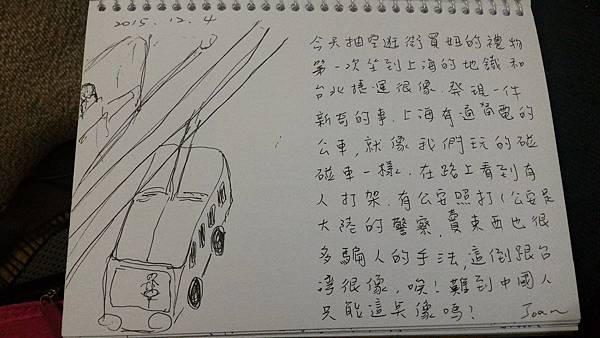 2015.12.4
今天抽空逛街買妞的禮物
第一次坐到上海的地鐵和
台北捷運很像.發現一件
新奇的事.上海有通電的
公車,就像我們玩的碰
碰車一樣.在路上看到有
人打架.有公安照打(公安是
大陸的警察,賣東西也很
多騙人的手法,這倒跟台
灣很像,唉!難到中國人
只能這吳像嗎? Joan